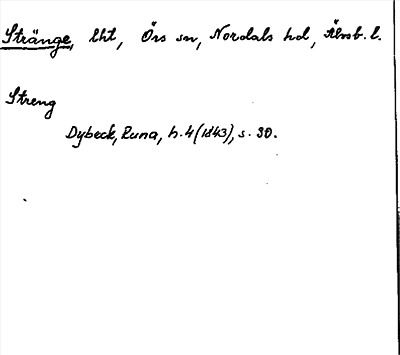 Stränge, lht, Örs sn, Nordals hd, Älvsb. l.
Streng
Dybeck, Runa, h. 4 (1843), s. 30.